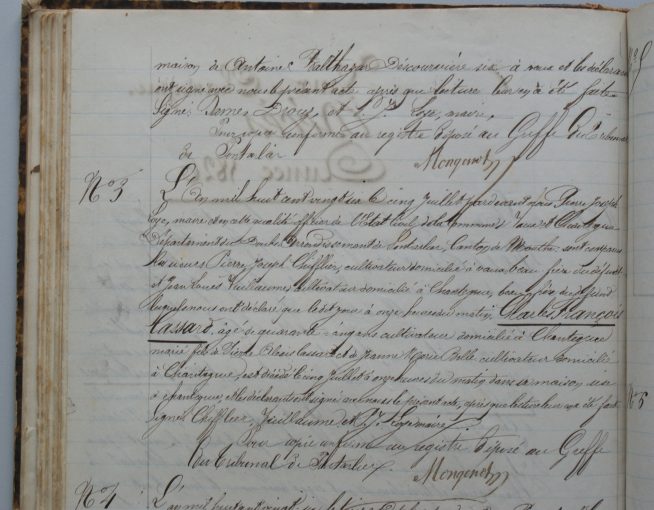 maison de Antoine Balthazar Découvrière sise à vaux et les déclarans
ont signé avec nous le présent acte après que lecture leur en a été faite
Signés Pome, Droux, et P. J. Loye, maire.
Pour copie conforme au registre déposé au Greffe du Tribunal
de Pontarlier
Mongenot
N° 3
L'An mil huit cent vingt six le cinq Juillet pardevant nous Pierre Joseph
Loye, maire et en cette qualité officier de l'Etat Civil de la commune de Vaux et Chantegrue
Département du Doubs Arrondissement de Pontarlier, Canton de Mouthe sont comparus
Pierre Joseph Chifflier, cultivateur domicilié à vaux beau frère du défunt
et Jean Louis Vuillaume, cultivateur domicilié à Chantegrue, beau frère du défunt
Lesquels nous ont déclaré que le dit jour à onze heures du matin, Charles François
Cassard, âgé de quarante ans cultivateur domicilié à Chantegrue
marié fils de Cassard et de Jeanne Marie cultivateur domicilié
à Chantegrue, est décédé le cinq Juillet à onze heures du matin dans sa maison sise
à chantegrue, et les déclarants ont signé avec nous le présent acte, après que lecture leur en a été faite
Signés Chifflier, Vuillaume et P. J. Loye maire.
Pour copie conforme au registre déposé au Greffe
du Tribunal de Pontarlier
Mongenot
N° 4
L'an mil huit cent vingt six le